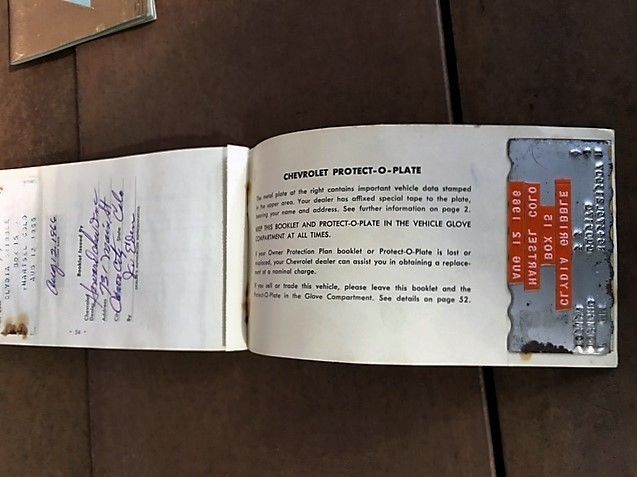 CLYDIA GRIBBLE
BOX 15
HARTSEL COLO
AUG 12 1966
Aug 12, 1966
Booklet Issued By
Chevrolet
Address
City
By
- 52 -
CHEVROLET PROTECT-O-PLATE
The metal plate at the right contains important vehicle data stamped
in the upper area. Your dealer has affixed special tape to the plate,
bearing your name and address. See further information on page 2.
KEEP THIS BOOKLET AND PROTECT-O-PLATE IN THE VEHICLE GLOVE
COMPARTMENT AT ALL TIMES.
If your Owner Protection Plan booklet or Protect-O-Plate is lost or
misplaced, your Chevrolet dealer can assist you in obtaining a replace-
ment at a nominal charge.
If you sell or trade this vehicle, please leave this booklet and the
Protect-O-Plate in the Glove Compartment. See details on page 52.
CLYDIA GRIBBLE
BOX 15
HARTSEL COLO
AUG 12 1966